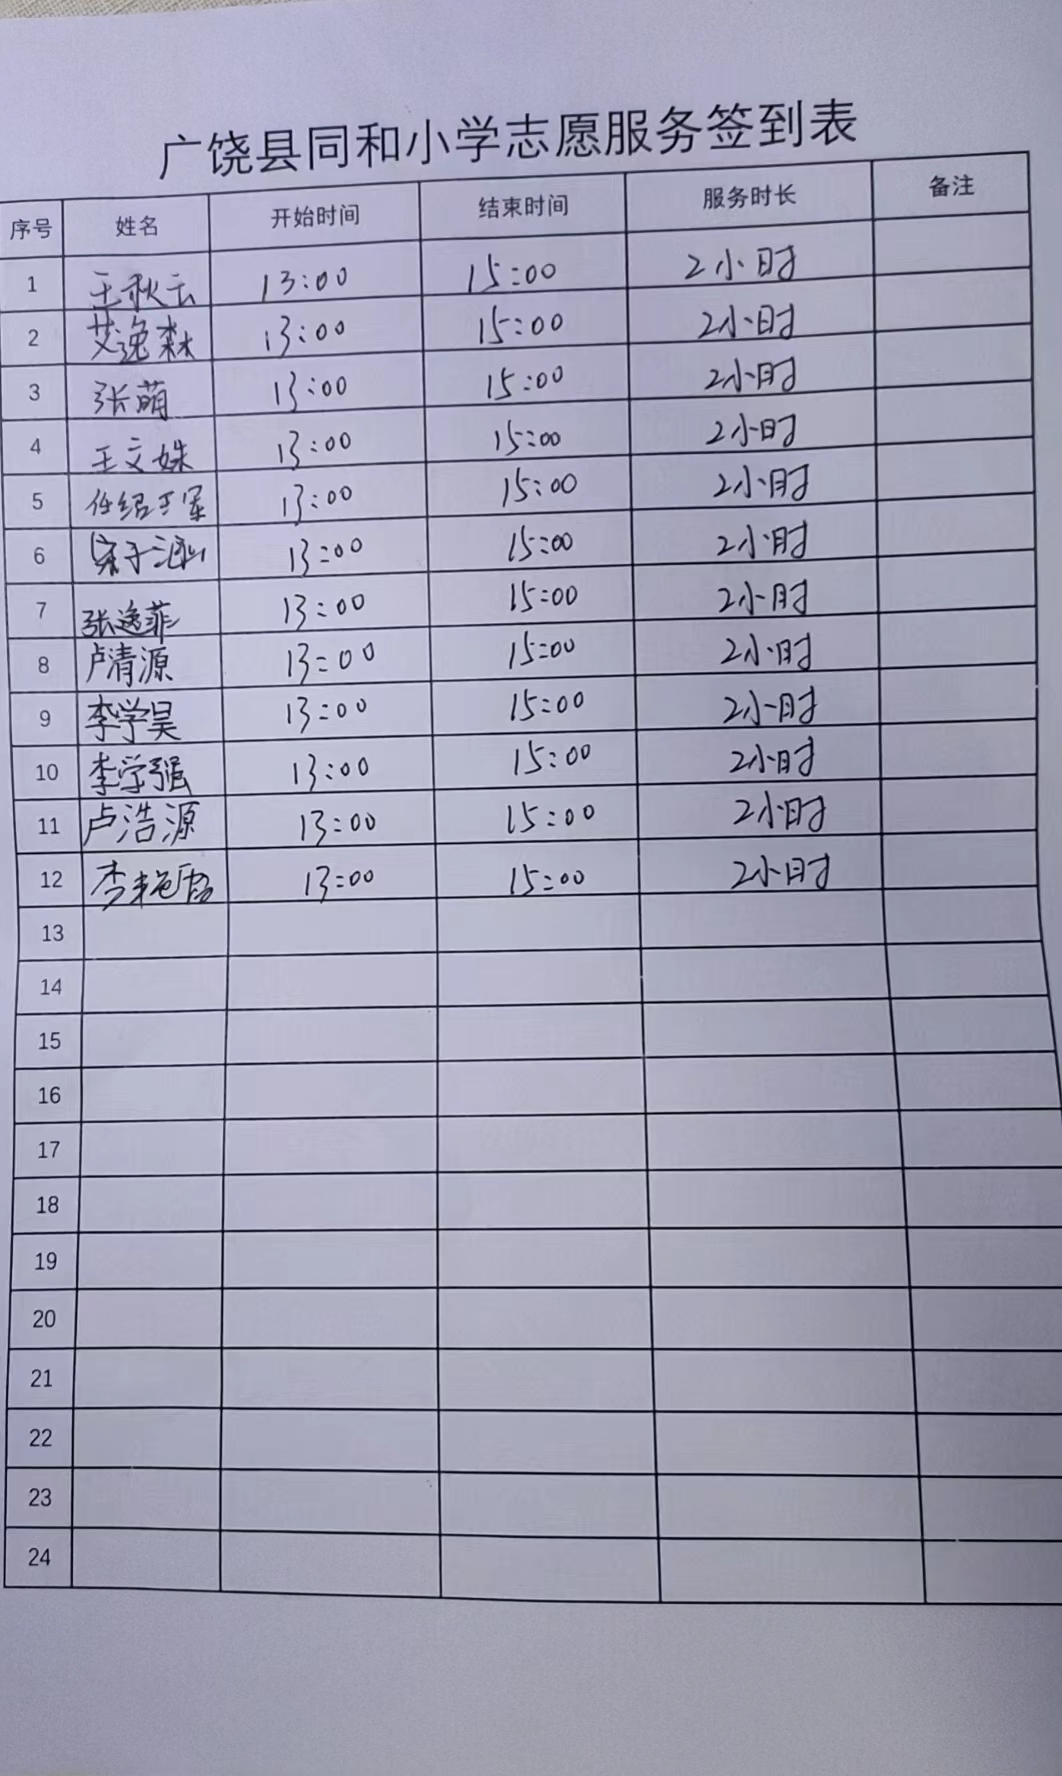 广饶县同和小学志愿服务签到表
序号 姓名 开始时间 结束时间 服务时长 备注
1 王秋云 13:00 15:00 2小时
2 艾逸森 13:00 15:00 2小时
3 张萌 13:00 15:00 2小时
4 王文姝 13:00 15:00 2小时
5 任绍军 13:00 15:00 2小时
6 子涵 13:00 15:00 2小时
7 张逸菲 13:00 15:00 2小时
8 卢清源 13:00 15:00 2小时
9 李学昊 13:00 15:00 2小时
10 李学强 13:00 15:00 2小时
11 卢浩源 13:00 15:00 2小时
12 李 13:00 15:00 2小时
13
14
15
16
17
18
19
20
21
22
23
24